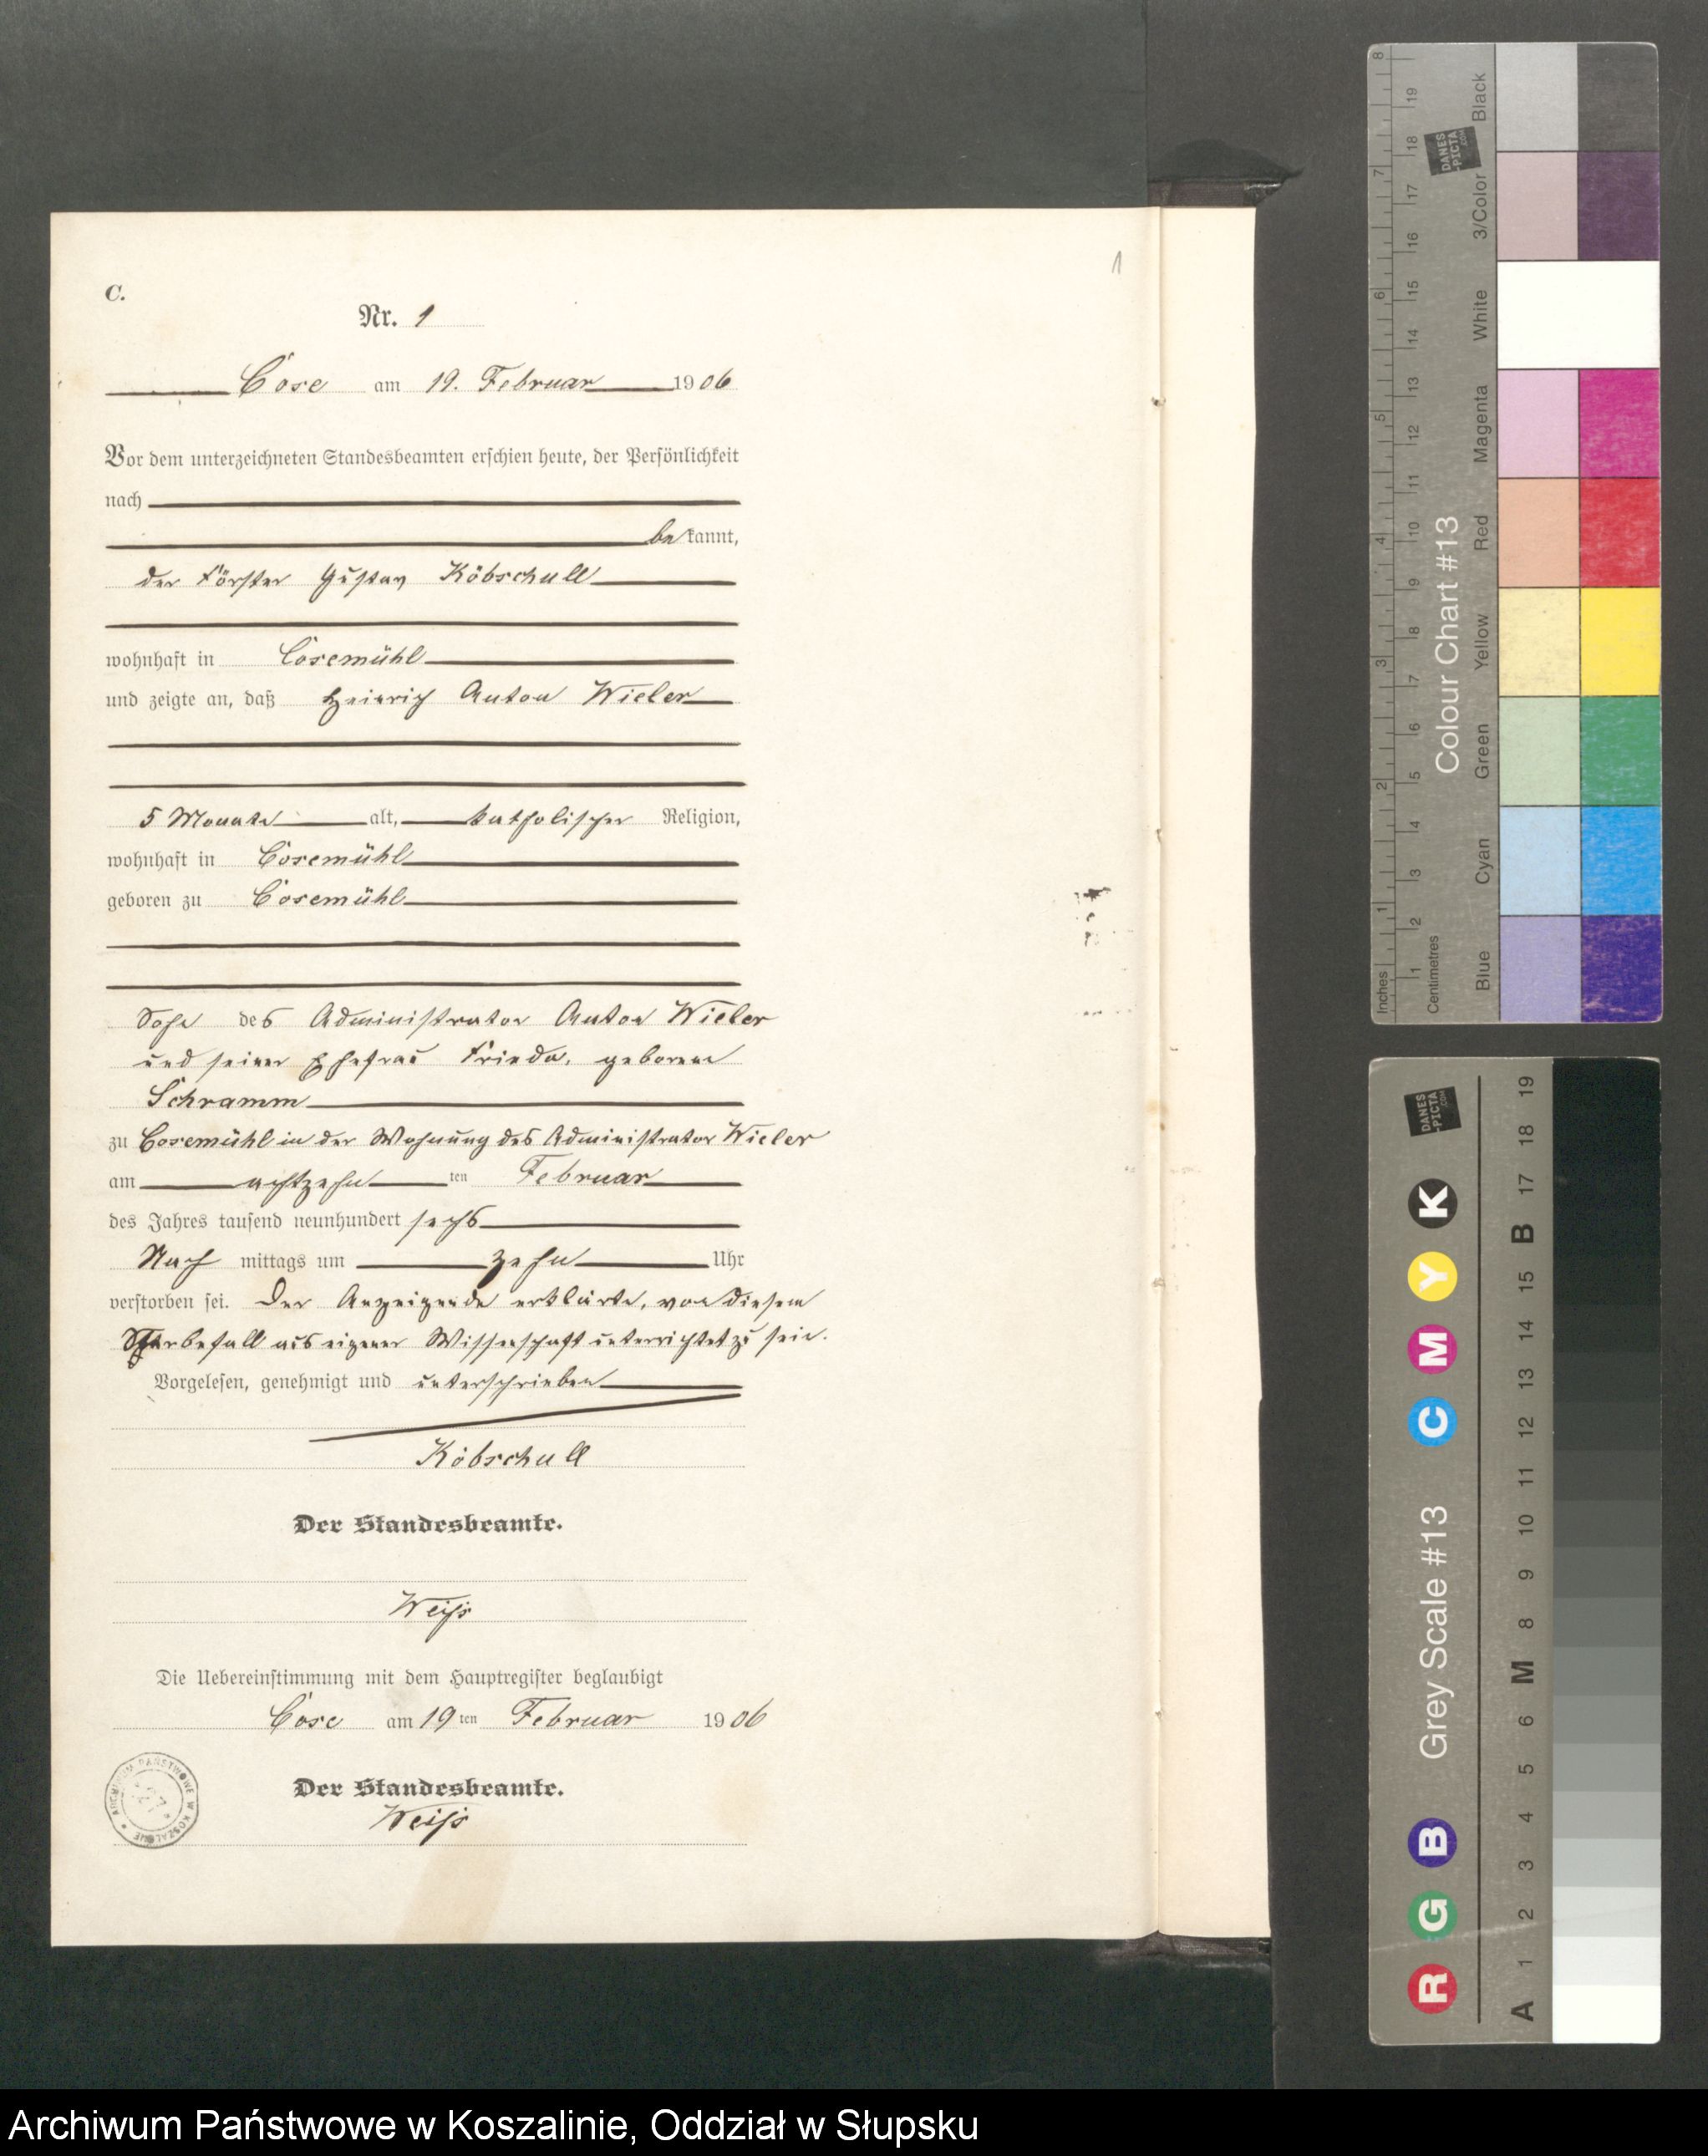 1
C.
Nr. 1
Cose am 19. Februar 1906
Vor dem unterzeichneten Standesbeamten erschien heute, der Persönlichkeit
nach
bekannt,
der Förster Gustav Köbschull
wohnhaft in Cosemühl
und zeigte an, daß Heinrich Anton Wieler
5 Monate alt, katholischer Religion,
wohnhaft in Cosemühl
geboren zu Cosemühl
Sohn des Administrator Anton Wieler
und seiner Ehefrau Frieda, geborene
Schramm
zu Cosemühl in der Wohnung des Administrator Wieler
am achtzehn ten Februar
des Jahres tausend neunhundert sechs
Nach mittags um zehn Uhr
verstorben sei. Der Anzeigende erklärte, von diesem
Sterbefall aus eigener Wissenschaft unterrichtet zu sein.
Vorgelesen, genehmigt und unterschrieben
Köbschull
Der Standesbeamte.
Weiß
Die Uebereinstimmung mit dem Hauptregister beglaubigt
Cose am 19 ten Februar 1906
Der Standesbeamte.
Weiß
ARCHIWUM PAŃSTWOWE W KOSZALINIE
Colour Chart #13
DANES-PICTA.COM
Blue Cyan Green Yellow Red Magenta White 3/Color Black
Inches 1 2 3 4 5 6 7 8
Centimetres 1 2 3 4 5 6 7 8 9 10 11 12 13 14 15 16 17 18 19
Grey Scale #13
DANES-PICTA.COM
R G B C M Y K
A 1 2 3 4 5 6 M 8 9 10 11 12 13 14 15 B 17 18 19
Archiwum Państwowe w Koszalinie, Oddział w Słupsku